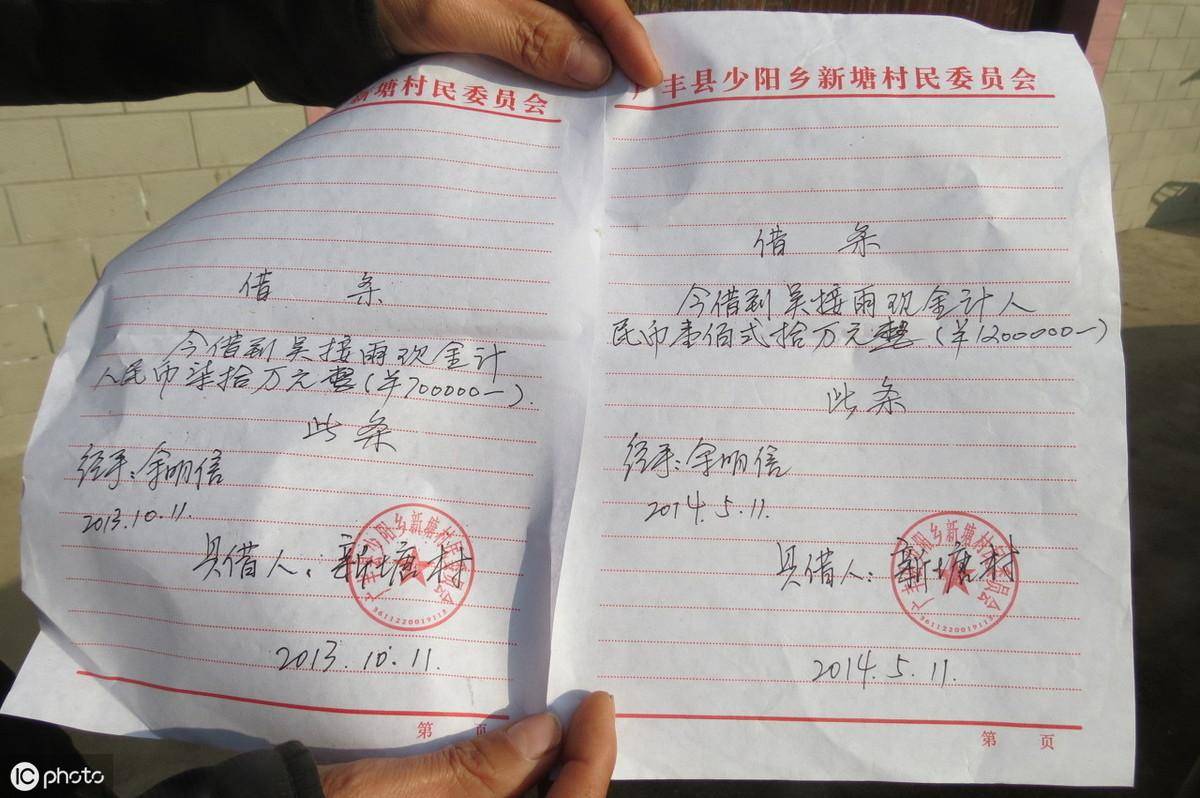 塘村民委员会
借 条
今借到吴接雨现金计
人民币柒拾万元整（￥700000—）.
此条
经手:余明信
2013.10.11.
具借人：新塘村
少阳乡新塘村民
3611220019113
2013.10.11.
第 页
丰县少阳乡新塘村民委员会
借 条
今借到吴接雨现金计人
民币壹佰弍拾万元整（￥1200000—）
此条
经手:余明信
2014.5.11.
具借人：新塘村
阳乡新塘村
3611220019113
2014.5.11.
第 页
IC photo